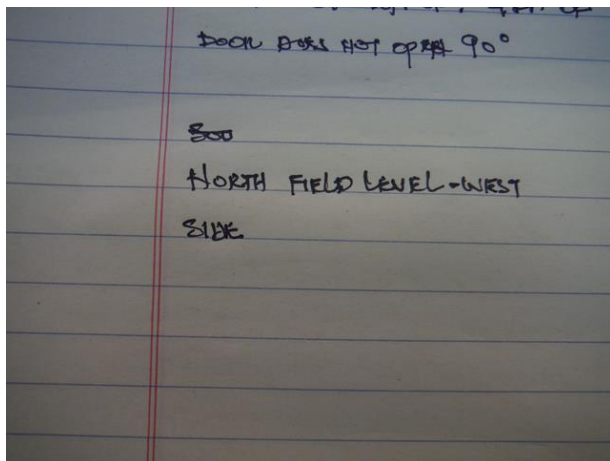 DOOR DOES NOT OPEN 90°
NORTH FIELD LEVEL-WEST
SIDE